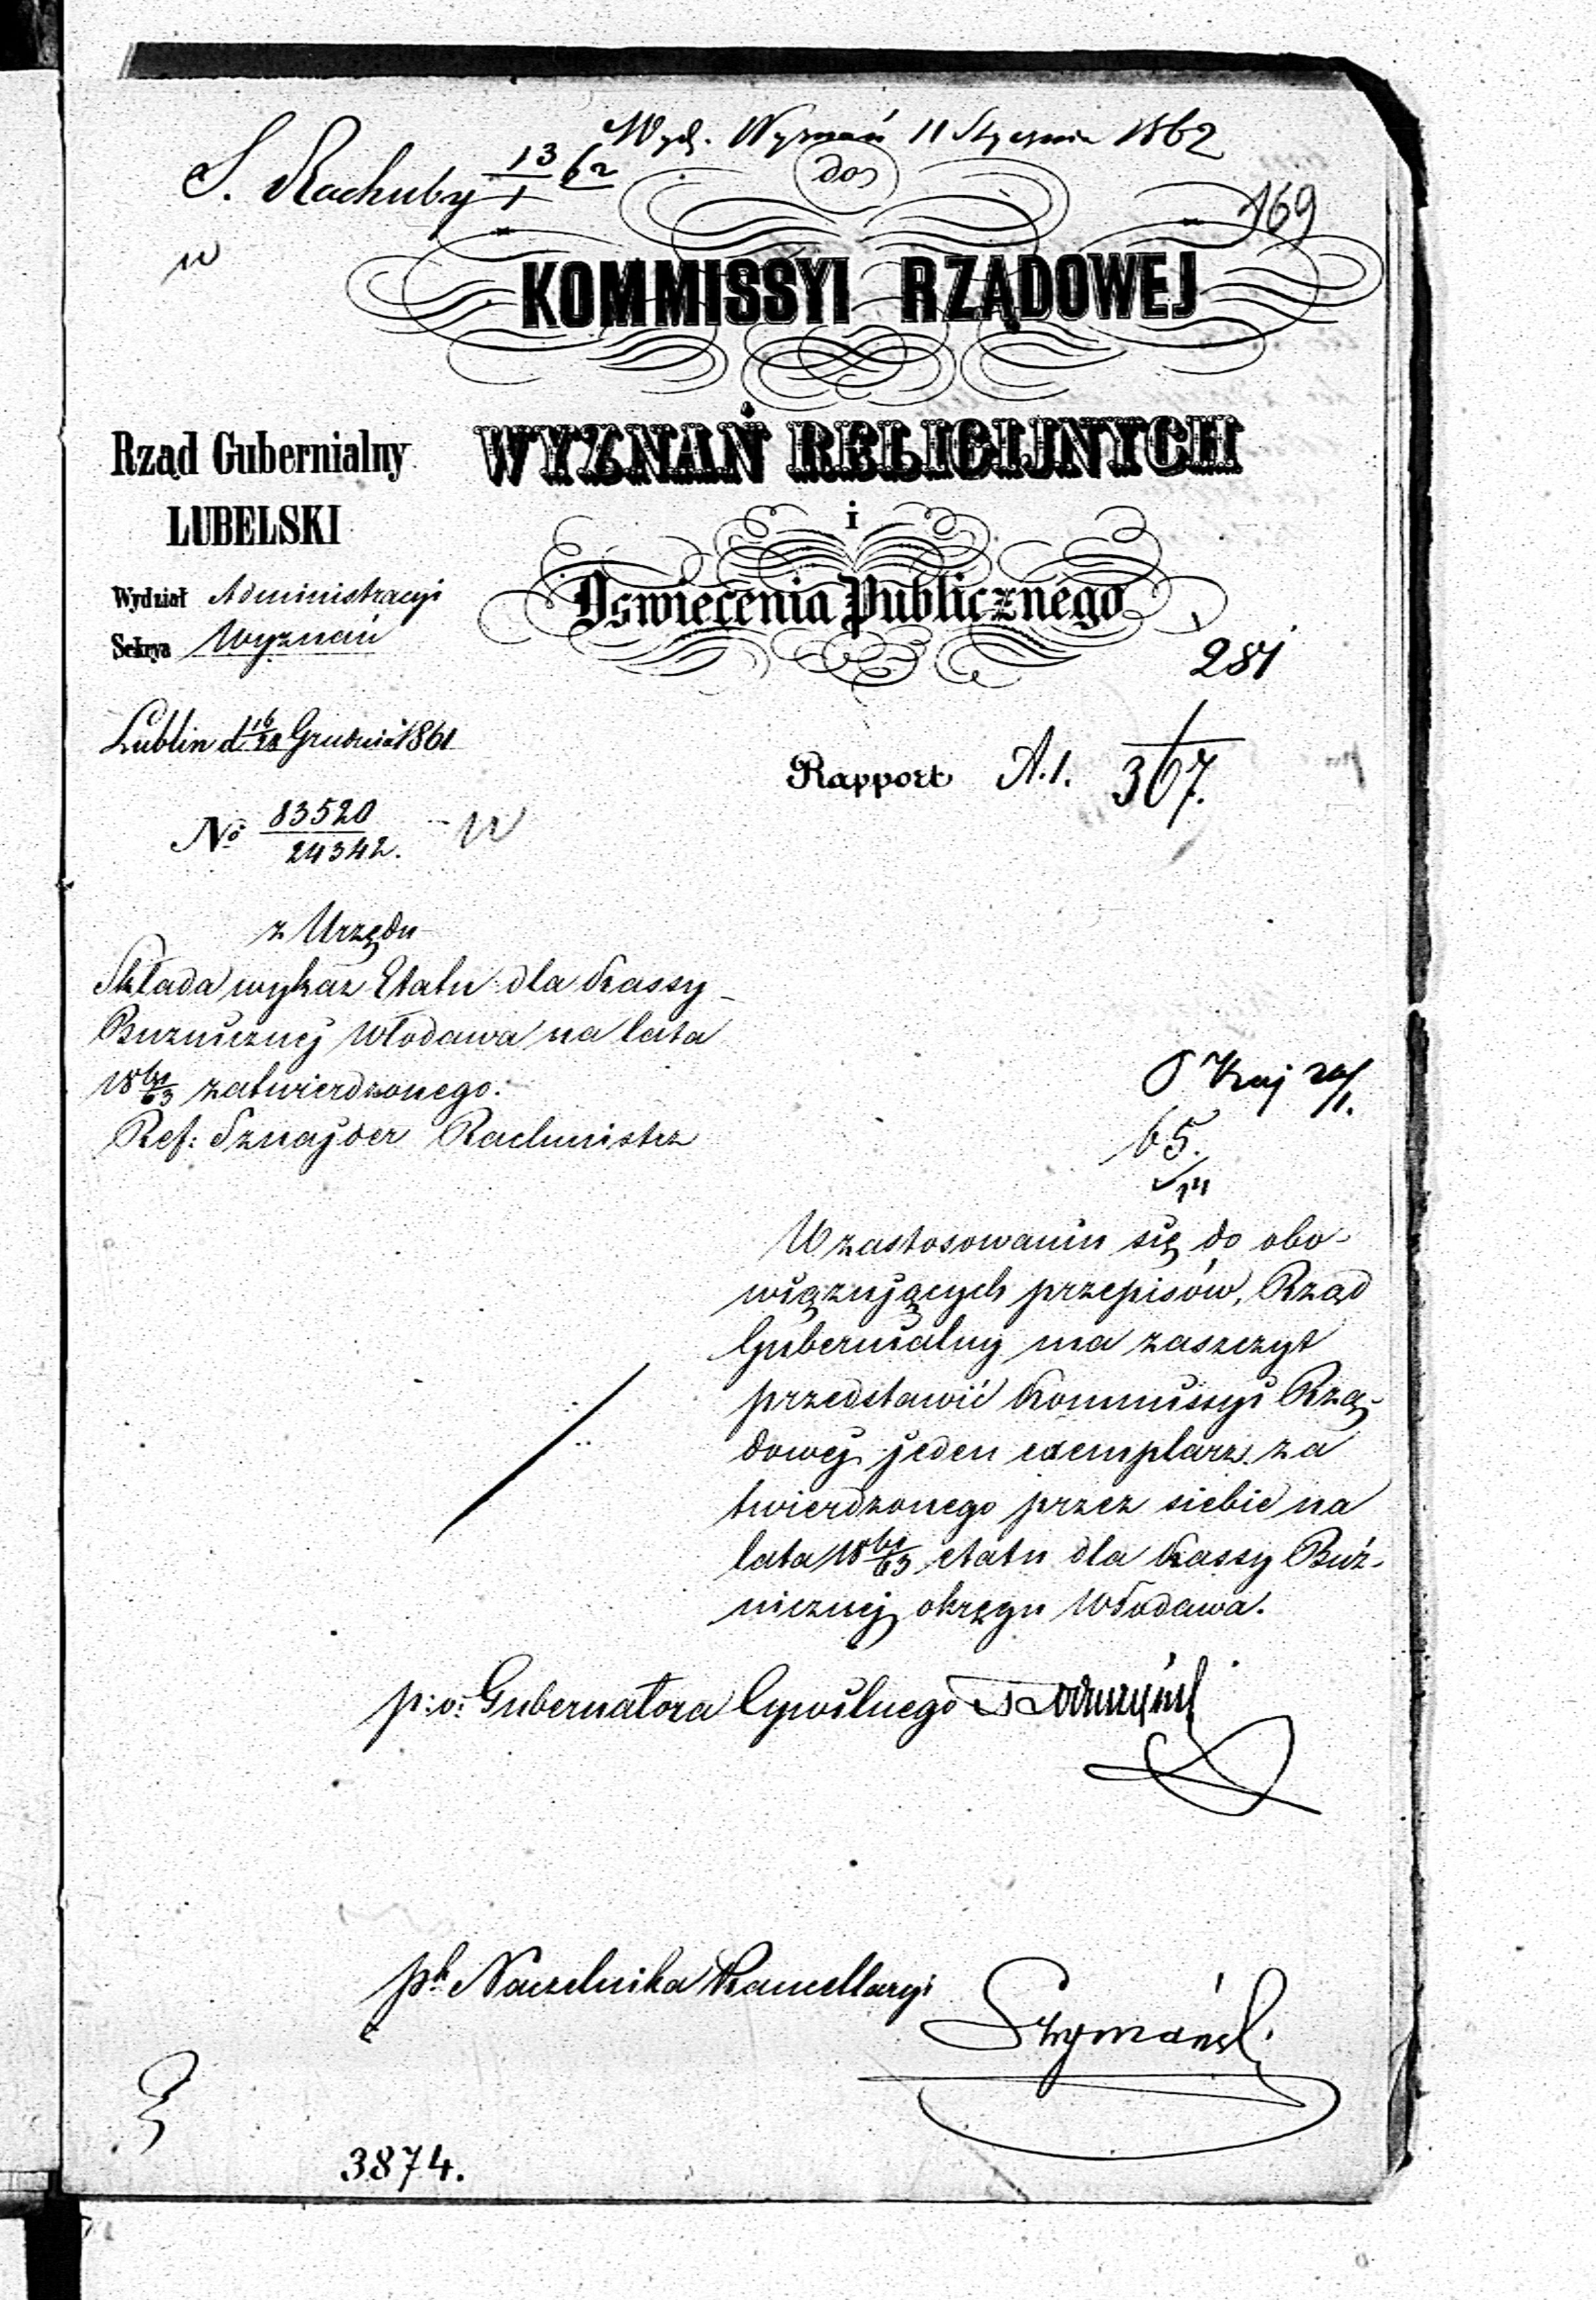 Wydz. Wyznań 11 Stycznia 1862
S. Rachuby 13/1 62
do
169
KOMMISSYI RZĄDOWEJ
WYZNAŃ RELIGIJNYCH
i
Oświecenia Publicznego
Rząd Gubernialny
LUBELSKI
Wydział Administracyi
Sekcya Wyznań
281
Lublin d. 16/28 Grudnia 1861
Rapport A.1. 367.
No 83520/24342.
z Urzędu
Składa wykaz Etatu dla Kassy
Bużnicznej Włodawa na lata
18 61/63 zatwierdzonego.
Ref: Sznajder Rachmistrz
65.
W zastosowaniu się do obo-
wiązujących przepisów, Rząd
Gubernialny ma zaszczyt
przedstawić Kommissyi Rzą-
dowej jeden exemplarz za
twierdzonego przez siebie na
lata 18 61/63 etatu dla Kassy Buź-
nicznej okręgu Włodawa.
p:o: Gubernatora Cywilnego
Naczelnika Kancellaryi
Szymański
3874.